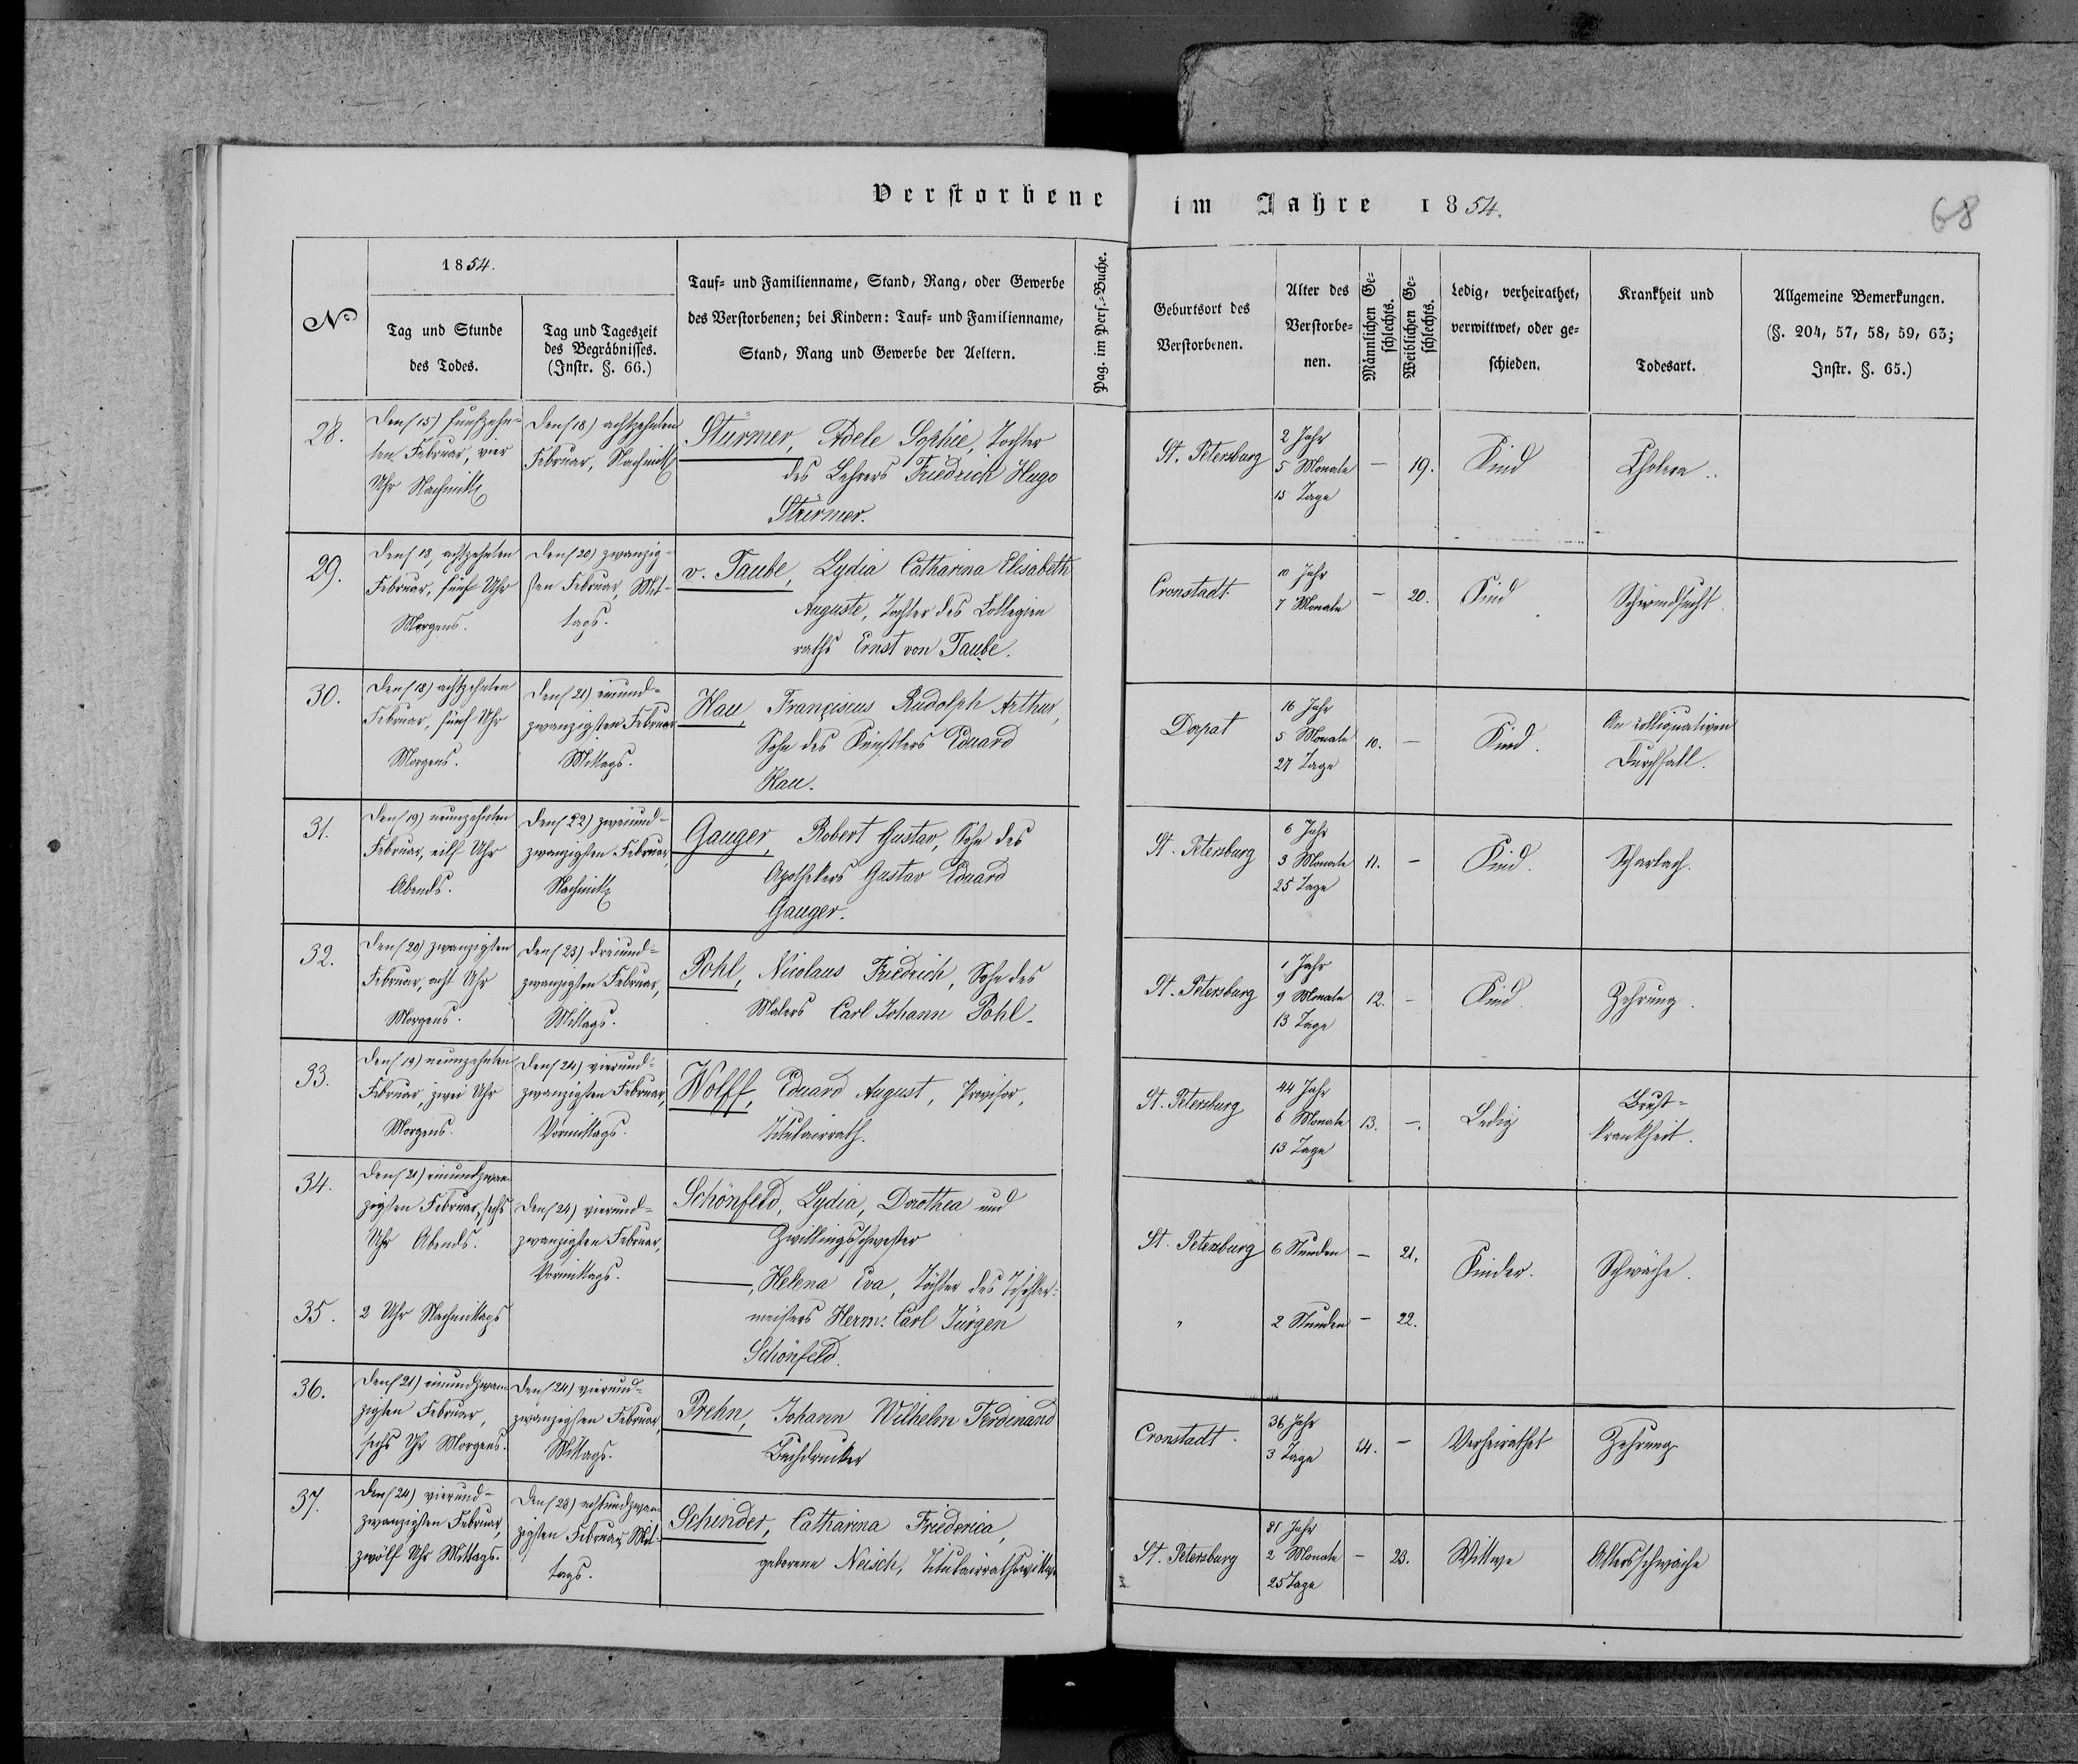 Verstorbene im Jahre 1854.
68
No
1854.
Tag und Stunde
des Todes.
Tag und Tageszeit
des Begräbnisses.
(Instr. §. 66.)
Tauf- und Familienname, Stand, Rang, oder Gewerbe
des Verstorbenen; bei Kindern: Tauf- und Familienname,
Stand, Rang und Gewerbe der Aeltern.
Pag. im Pers.-Buche.
Geburtsort des
Verstorbenen.
Alter des
Verstorbe-
nen.
Männlichen Ge-
schlechts.
Weiblichen Ge-
schlechts.
Ledig, verheirathet,
verwittwet, oder ge-
schieden.
Krankheit und
Todesart.
Allgemeine Bemerkungen.
(§. 204, 57, 58, 59, 63;
Instr. §. 65.)
28.
Den (15) fünfzehn-
ten Februar, vier
Uhr Nachmitt
Den (18) achtzehnten
Februar, Nachmitt
Stürmer, Adele Sophie, Tochter
des Lehrers Friedrich Hugo
Stürmer.
St. Petersburg
2 Jahr
5 Monate
15 Tage
–
19.
Kind
Cholera.
29.
Den (18) achtzehnten
Februar, fünf Uhr
Morgens.
Den (20) zwanzig-
sten Februar, Mit-
tags.
v. Taube, Lydia Catharina Elisabeth
Auguste, Tochter des Collegien
raths Ernst von Taube.
Cronstadt.
10 Jahr
7 Monate
–
20.
Kind
Schwindsucht.
30.
Den (18) achtzehnten
Februar, fünf Uhr
Morgens.
Den (21) einund-
zwanzigsten Februar
Mittags.
Hau, Franciscus Rudolph Arthur,
Sohn des Künstlers Eduard
Hau.
Dorpat
16 Jahr
5 Monate
27 Tage
10.
–
Kind.
An colliquativen
Durchfall.
31.
Den (19) neunzehnten
Februar, eilf Uhr
Abends.
Den (22) zweiund-
zwanzigsten Februar,
Nachmitt
Gauger, Robert Gustav, Sohn des
Apothekers Gustav Eduard
Gauger.
St. Petersburg
6 Jahr
3 Monate
25 Tage
11.
–
Kind.
Scharlach.
32.
Den (20) zwanzigsten
Februar, acht Uhr
Morgens.
Den (23) dreiund-
zwanzigsten Februar,
Mittags.
Pohl, Nicolaus Friedrich, Sohn des
Malers Carl Johann Pohl.
St. Petersburg
1 Jahr
9 Monate
13 Tage
12.
–
Kind.
Zehrung.
33.
Den (19) neunzehnten
Februar, zwei Uhr
Morgens.
Den (24) vierund-
zwanzigsten Februar,
Vormittags.
Wolff, Eduard August, Provisor,
Titulairrath.
St. Petersburg
44 Jahr
6 Monate
13 Tage
13.
–
Ledig
Brust-
krankheit.
34.
Den (21) einundzwan
zigsten Februar, sechs
Uhr Abends.
Den (24) vierund-
zwanzigsten Februar,
Vormittags.
Schönfeld, Lydia, Dorothea und
Zwillingsschwester
St. Petersburg
6 Stunden
–
21.
Kinder.
Schwäche.
35.
2 Uhr Nachmittags
–, Helena Eva, Töchter des Tischler-
meisters Herm. Carl Jürgen
Schönfeld.
"
2 Stunden
–
22.
36.
Den (21) einundzwan
zigsten Februar,
sechs Uhr Morgens.
Den (24) vierund-
zwanzigsten Februar,
Mittags.
Prehn, Johann Wilhelm Ferdinand
Buchdrucker
Cronstadt.
36 Jahr
3 Tage
14.
–
Verheirathet
Zehrung
37.
Den (24) vierund-
zwanzigsten Februar,
zwölf Uhr Mittags.
Den (28) achtundzwan
zigsten Februar Mit-
tags.
Schinder, Catharina Friederica,
geborene Neisch, Titulairrathswittwe
St. Petersburg
81 Jahr
2 Monate
25 Tage
–
23.
Wittwe
Altersschwäche